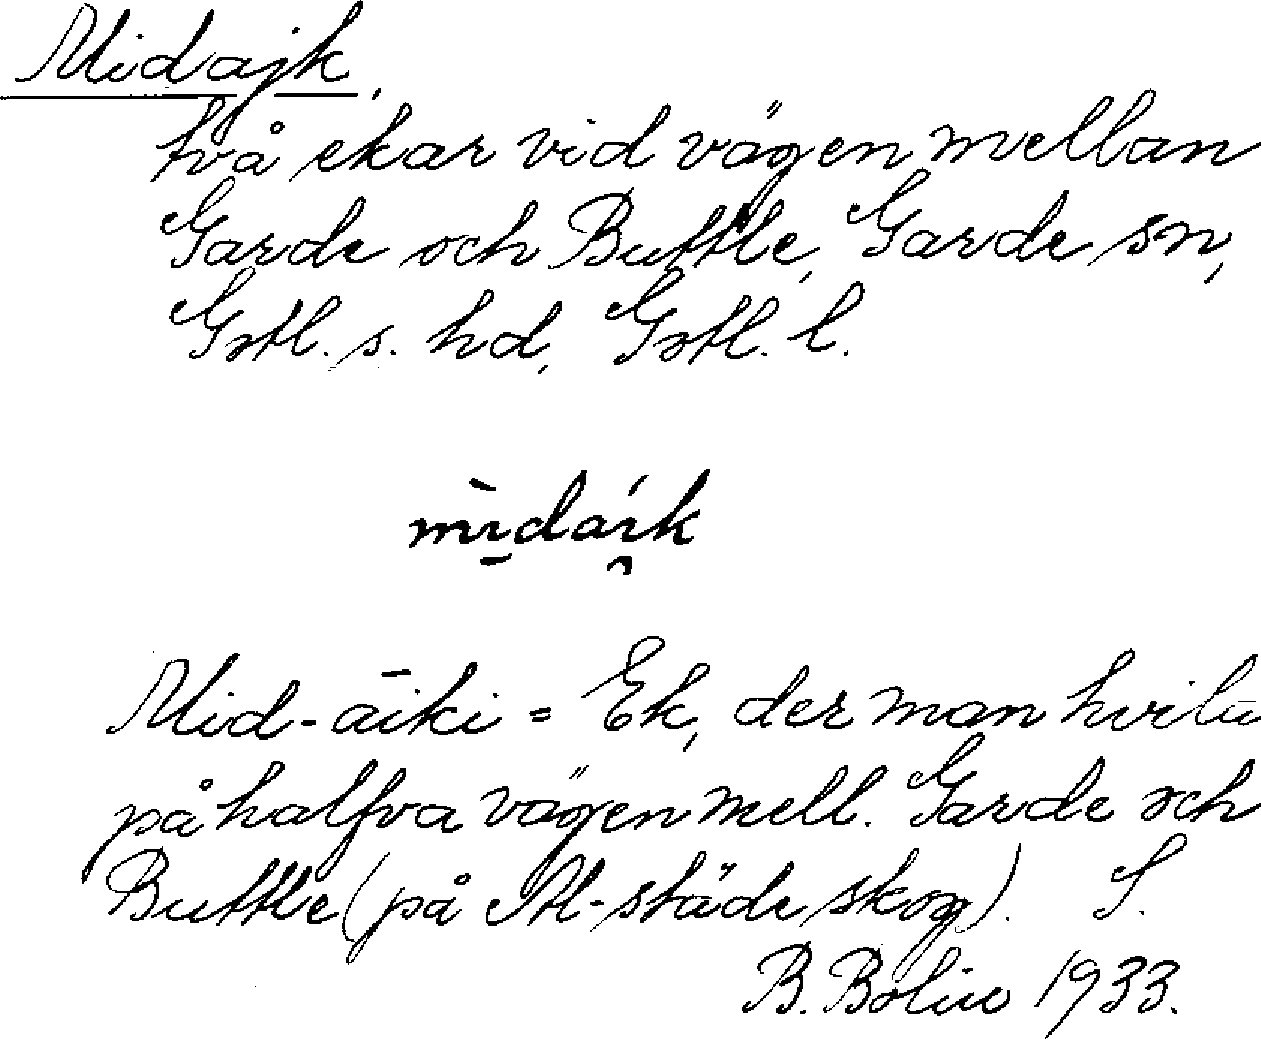 Midajk,
två ekar vid vägen mellan
Garde och Buttle, Garde sn,
Gotl. s. hd, Gotl. l.
mìdaík
Mid-äiki = Ek, der man hvila
på halfva vägen mell. Garde och
Buttle (på Al-städe skog). S.
B. Bolin 1933.